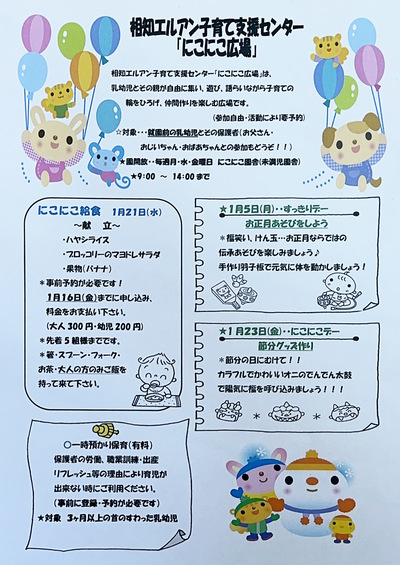 相知エルアン子育て支援センター
「にこにこ広場」
相知エルアン子育て支援センター「にこにこ広場」は、
乳幼児とその親が自由に集い、遊び、語らいながら子育ての
輪をひろげ、仲間作りを楽しむ広場です。
(参加自由・活動により要予約)
☆対象・・・就園前の乳幼児とその保護者(お父さん・
おじいちゃん・おばあちゃんとの参加もどうぞ！！)
★園開放・・毎週月・水・金曜日 にこにこ園舎(未満児園舎)
★9:00 ～ 14:00まで
にこにこ給食 1月21日(水)
～献 立～
・ハヤシライス
・ブロッコリーのマヨドレサラダ
・果物(バナナ)
＊事前予約が必要です！
1月16日(金)までに申し込み、
料金をお支払い下さい。
(大人300円・幼児200円)
＊先着5組様までです。
＊箸・スプーン・フォーク・
お茶・大人の方のみご飯を
持って来て下さい。
★1月5日(月)・・すっきりデー
お正月あそびをしよう
＊福笑い、けん玉…お正月ならではの
伝承あそびを楽しみましょう♪
手作り羽子板で元気に体を動かしましょう！
★1月23日(金)・・にこにこデー
節分グッズ作り
＊節分の日にむけて！！
カラフルでかわいいオニのでんでん太鼓
で陽気に福を呼び込みましょう！！！
○一時預かり保育(有料)
保護者の労働、職業訓練・出産
リフレッシュ等の理由により育児が
出来ない時にご利用ください。
(事前に登録・予約が必要です)
★対象 3ヶ月以上の首のすわった乳幼児